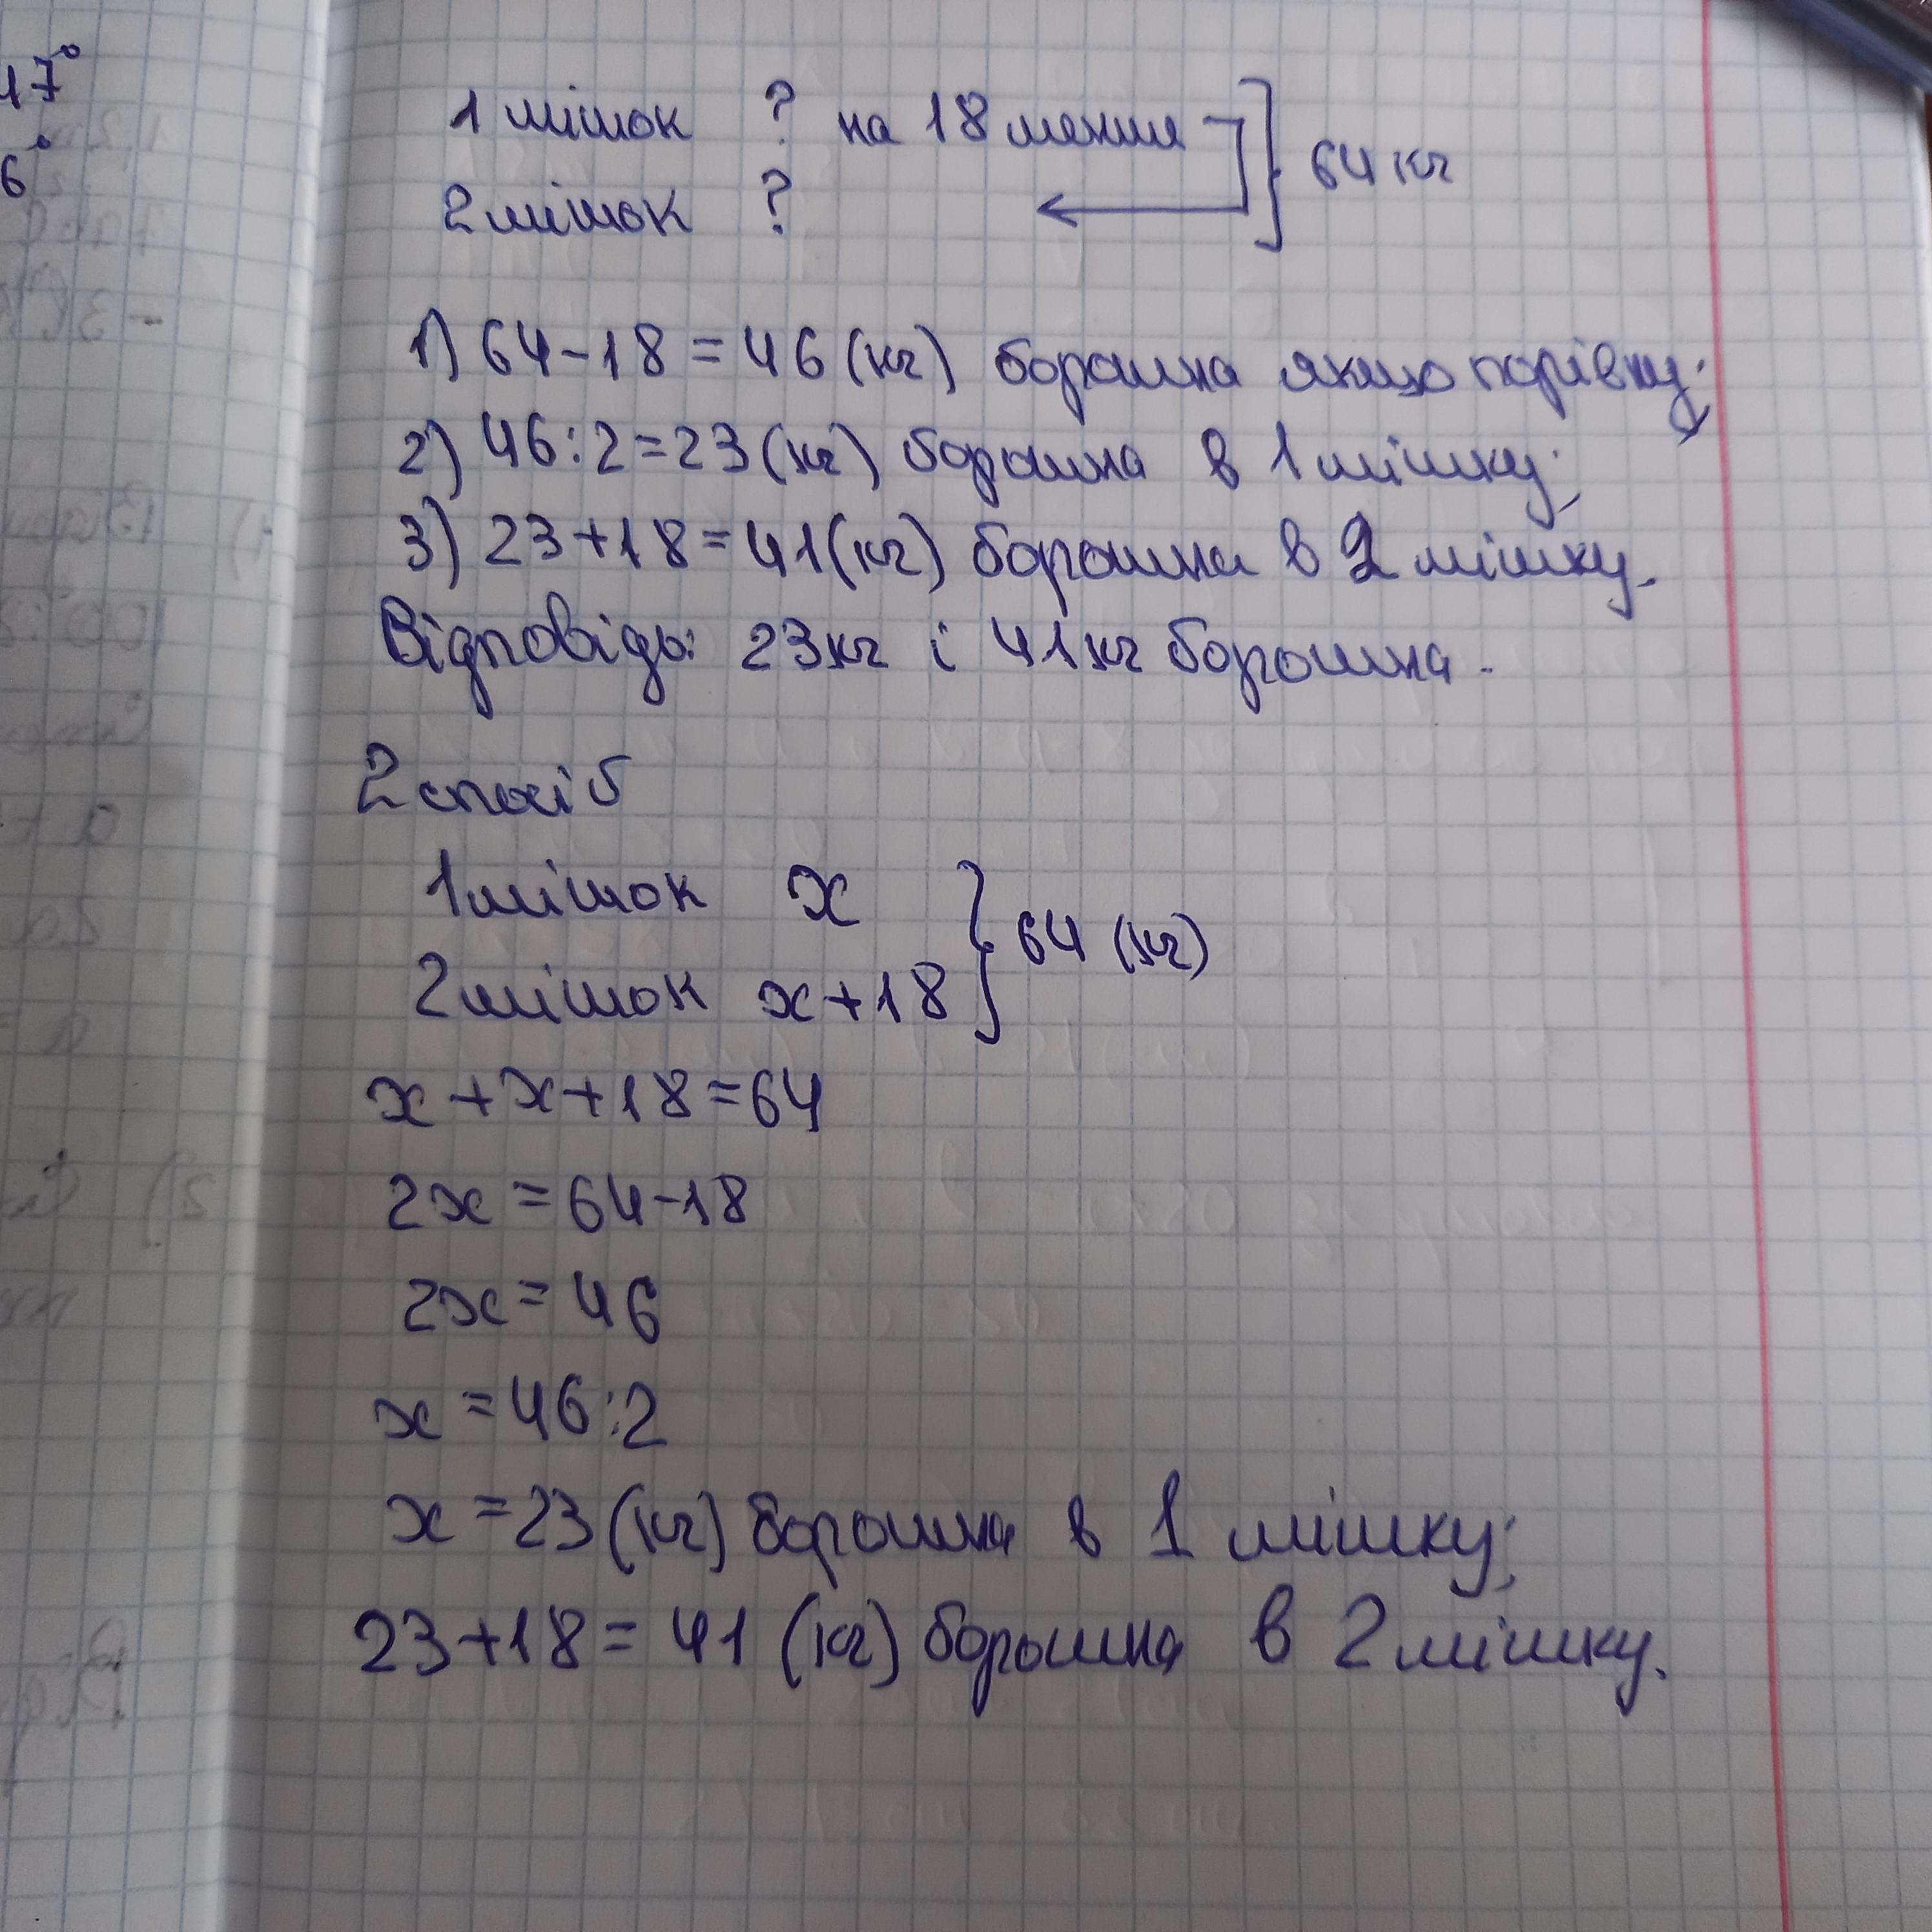 17°
6°
1 мішок ? на 18 менше
2 мішок ?
64 кг
1) 64-18=46 (кг) борошна якщо порівну;
2) 46:2=23 (кг) борошна в 1 мішку;
3) 23+18=41 (кг) борошна в 2 мішку.
Відповідь: 23 кг і 41 кг борошна.
2 спосіб
1 мішок x
2 мішок x+18
64 (кг)
x+x+18=64
2x=64-18
2x=46
x=46:2
x=23 (кг) борошна в 1 мішку;
23+18=41 (кг) борошна в 2 мішку.